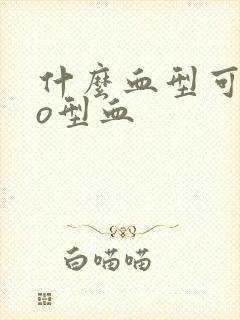 什麼血型可
o型血
白喵喵